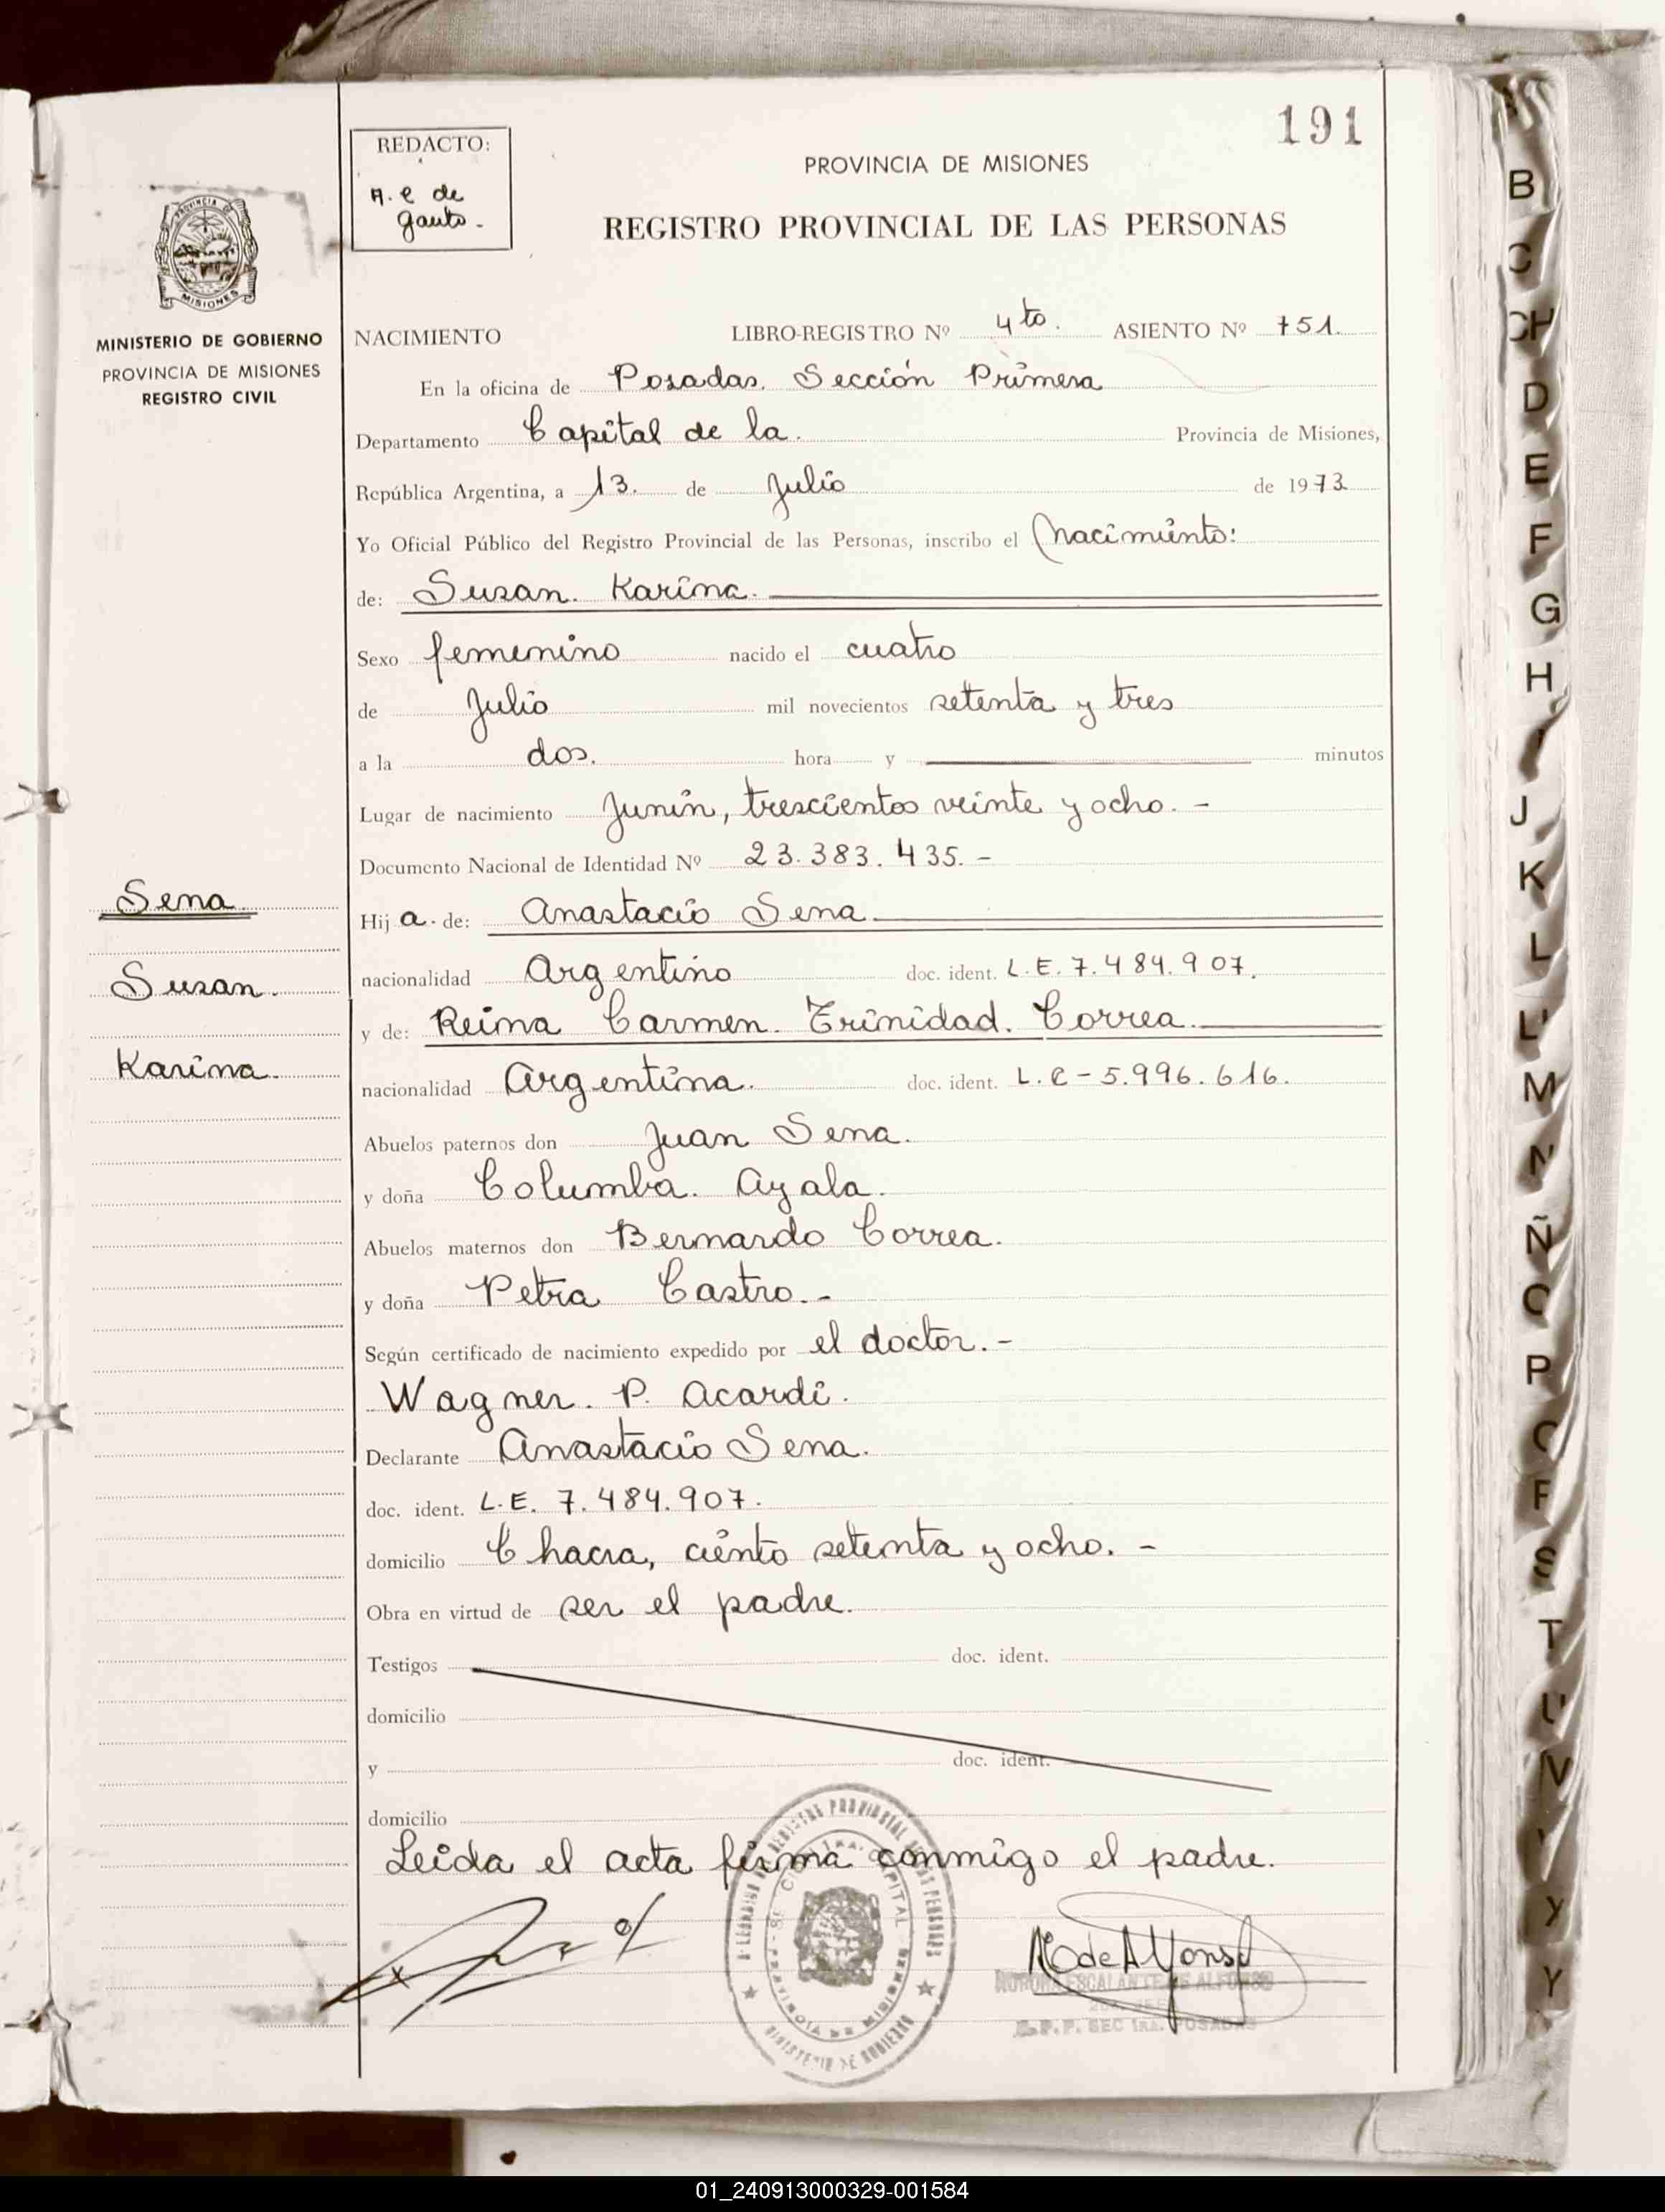 191
REDACTO:
A. E de
Gauto.-
PROVINCIA DE MISIONES
REGISTRO PROVINCIAL DE LAS PERSONAS
MISIONES
MINISTERIO DE GOBIERNO
PROVINCIA DE MISIONES
REGISTRO CIVIL
NACIMIENTO LIBRO-REGISTRO Nº 4to. ASIENTO Nº 751.
En la oficina de Posadas. Sección Primera
Departamento Capital de la. Provincia de Misiones,
República Argentina, a 13. de Julio de 1973
Yo Oficial Público del Registro Provincial de las Personas, inscribo el Nacimiento:
de: Susan. Karina.
Sexo femenino nacido el cuatro
de Julio mil novecientos setenta y tres
a la dos. hora y minutos
Lugar de nacimiento Junín, trescientos veinte y ocho. -
Documento Nacional de Identidad Nº 23.383.435. -
Sena
Hija. de: Anastacio Sena
Susan.
nacionalidad Argentino doc. ident. L.E. 7.484.907.
y de: Reina Carmen. Trinidad. Correa.
Karina.
nacionalidad Argentina. doc. ident. L.C - 5.996.616.
Abuelos paternos don Juan Sena.
y doña Columba. Ayala.
Abuelos maternos don Bernardo Correa.
y doña Petra Castro. -
Según certificado de nacimiento expedido por el doctor. -
Wagner. P. Acardi.
Declarante Anastacio Sena.
doc. ident. L.E. 7.484.907.
domicilio Chacra, ciento setenta y ocho. -
Obra en virtud de ser el padre.
Testigos doc. ident.
domicilio
y doc. ident.
domicilio
Leida el acta firma conmigo el padre.
ESCALANTE DE ALFONSO
SEC 1ra. POSADAS
MINISTERIO DE GOBIERNO
B
C
CH
D
E
F
G
H
I
J
K
L
LL
M
N
Ñ
O
P
Q
R
S
T
U
V
Y
Y
01_240913000329-001584